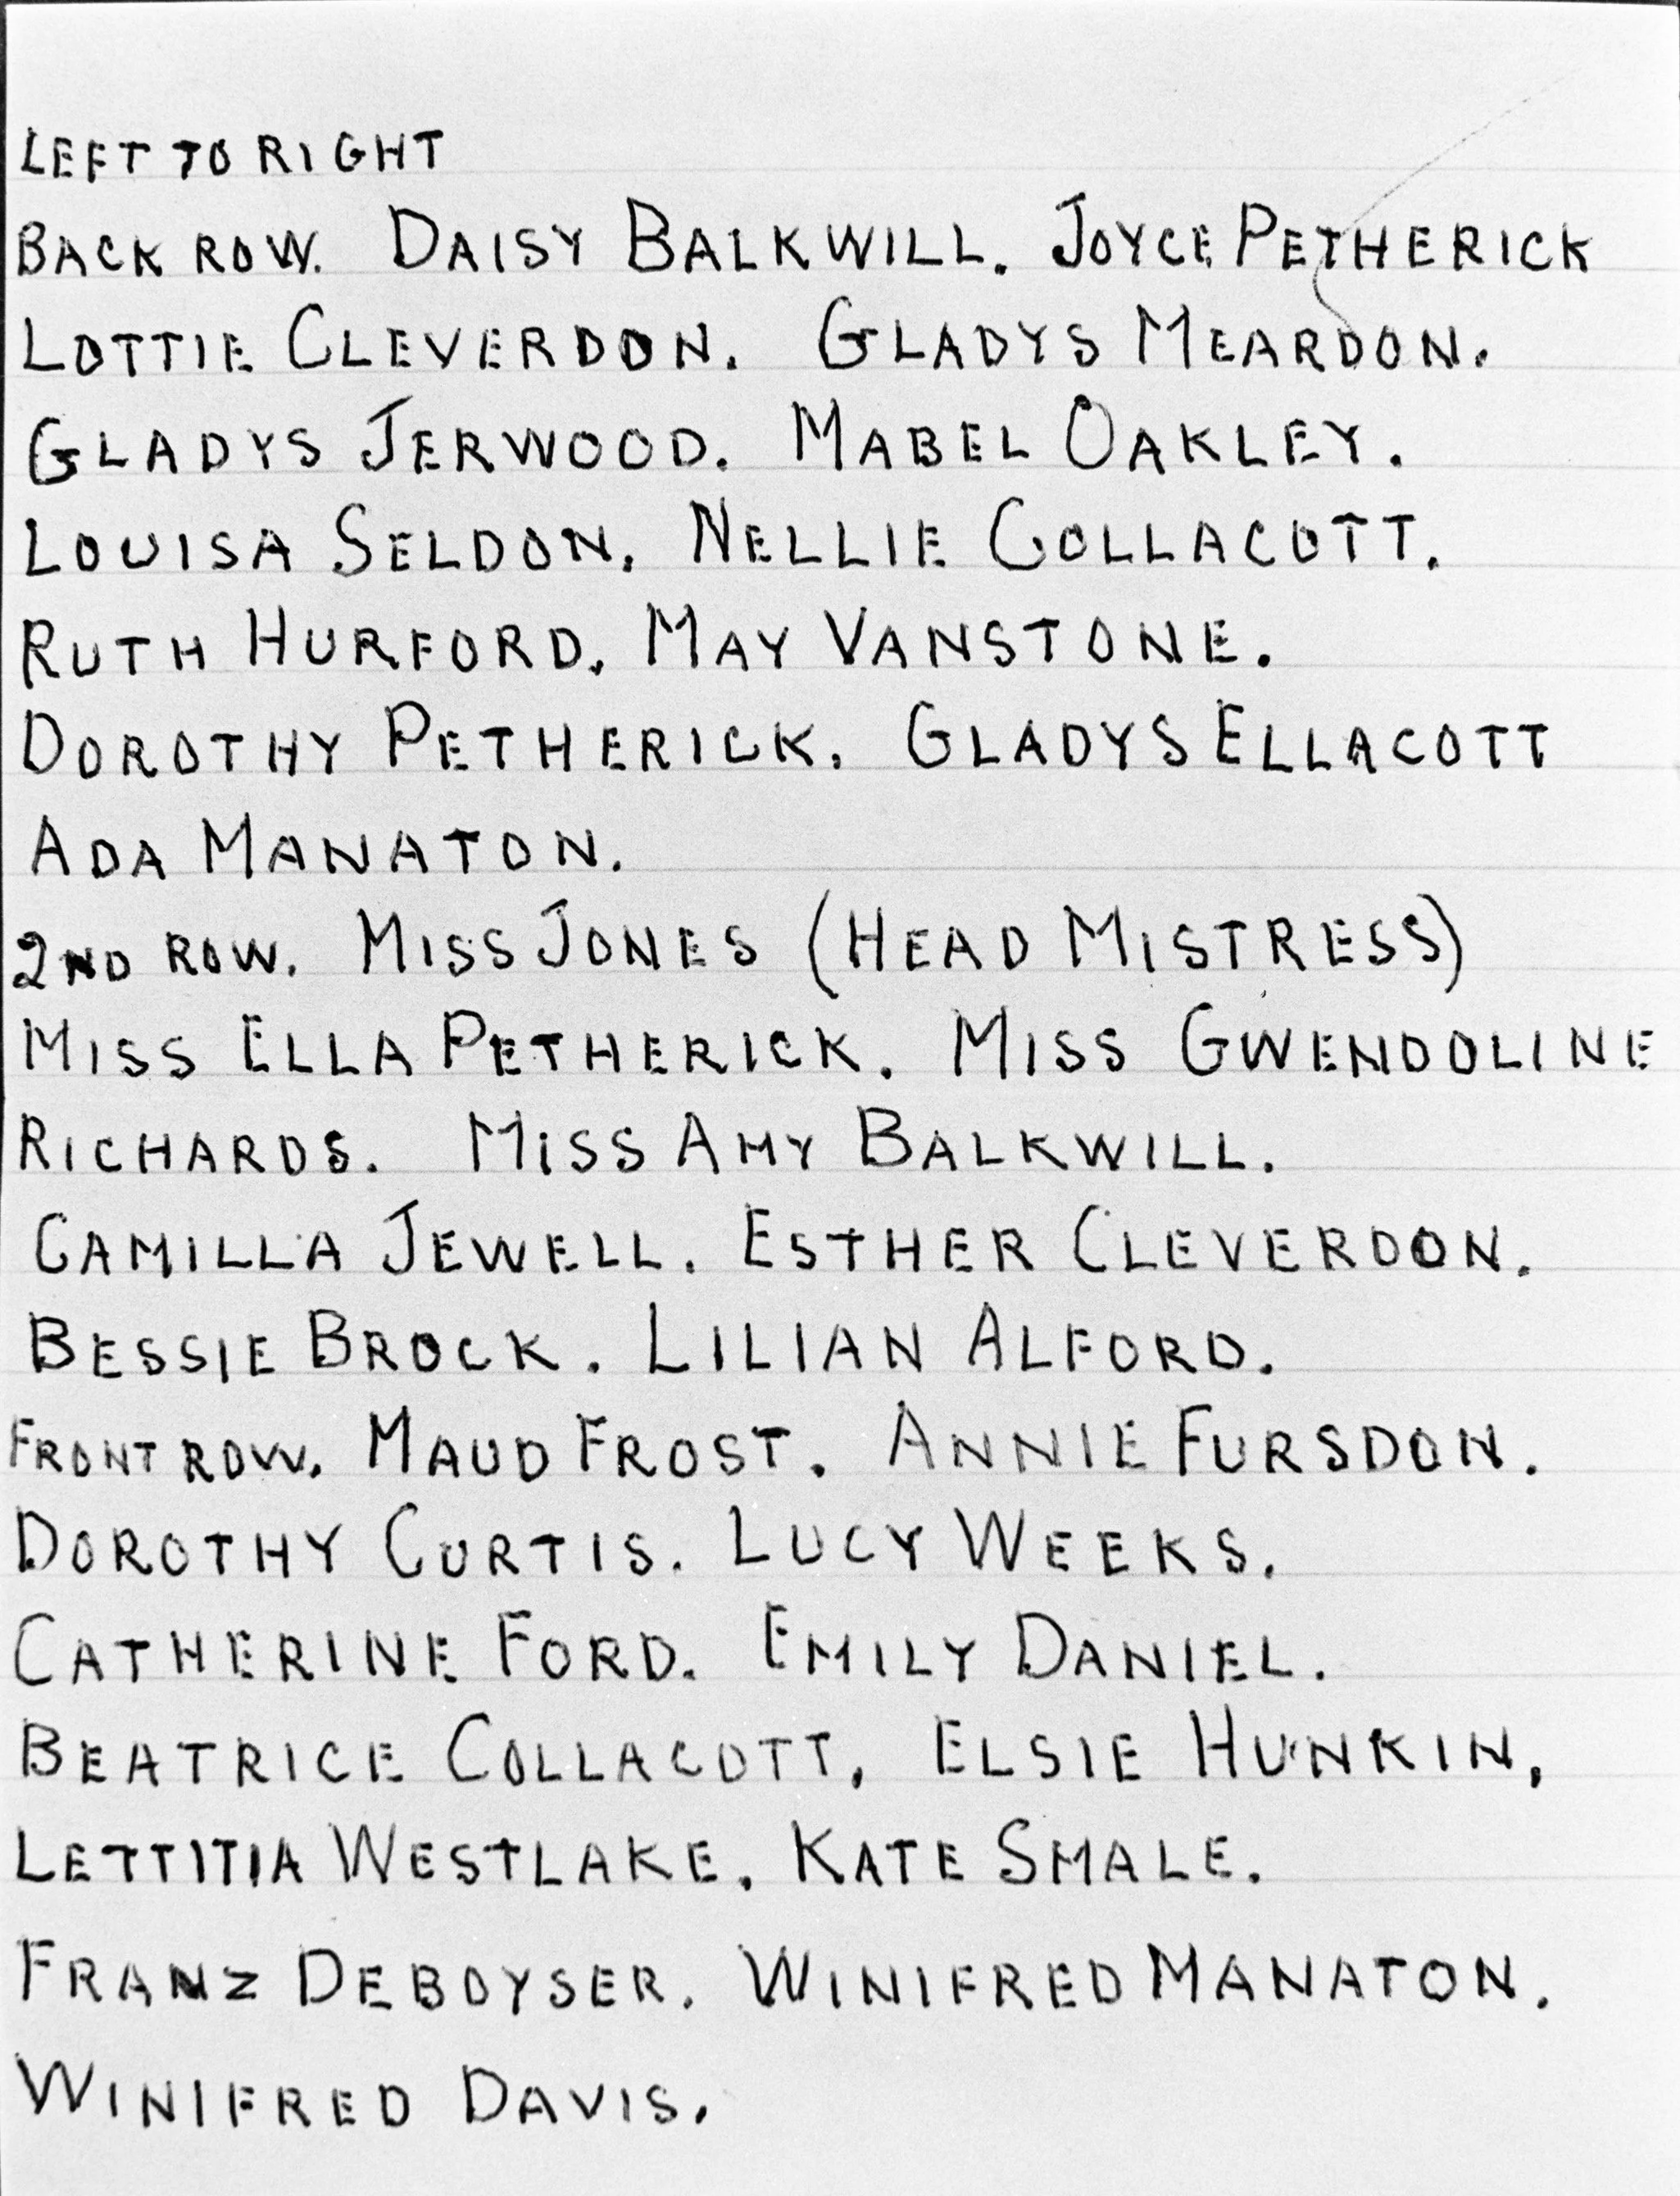 LEFT TO RIGHT
BACK ROW. DAISY BALKWILL. JOYCE PETHERICK
LOTTIE CLEVERDON. GLADYS MEARDON.
GLADYS JERWOOD. MABEL OAKLEY.
LOUISA SELDON. NELLIE COLLACOTT.
RUTH HURFORD. MAY VANSTONE.
DOROTHY PETHERICK. GLADYS ELLACOTT
ADA MANATON.
2ND ROW. MISS JONES (HEAD MISTRESS)
MISS ELLA PETHERICK. MISS GWENDOLINE
RICHARDS. MISS AMY BALKWILL.
CAMILLA JEWELL. ESTHER CLEVERDON.
BESSIE BROCK. LILIAN ALFORD.
FRONT ROW. MAUD FROST. ANNIE FURSDON.
DOROTHY CURTIS. LUCY WEEKS.
CATHERINE FORD. EMILY DANIEL.
BEATRICE COLLACOTT, ELSIE HUNKIN,
LETTITIA WESTLAKE. KATE SMALE.
FRANZ DEBOYSER. WINIFRED MANATON.
WINIFRED DAVIS.